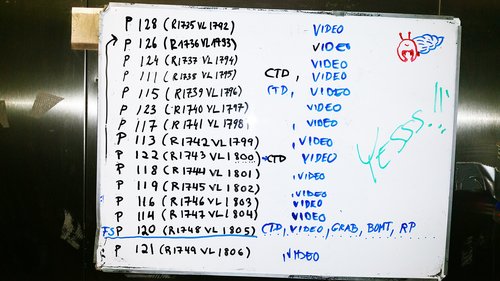 P 128 (R1735 VL 1792) VIDEO
P 126 (R1736 VL 1793) VIDEO
P 124 (R1737 VL 1794) VIDEO
P 111 (R1738 VL 1795) CTD, VIDEO
P 115 (R1739 VL 1796) CTD, VIDEO
P 123 (R1740 VL 1797) VIDEO
P 117 (R1741 VL 1798) , VIDEO
P 113 (R1742 VL 1799) , VIDEO
P 122 (R1743 VL 1800) CTD VIDEO
P 118 (R1744 VL 1801) , VIDEO
P 119 (R1745 VL 1802) , VIDEO
P 116 (R1746 VL 1803) , VIDEO
P 114 (R1747 VL 1804) VIDEO
FS P 120 (R1748 VL 1805) CTD, VIDEO, GRAB, BOMT, RP
P 121 (R1749 VL 1806) , VIDEO
YESSS..!!